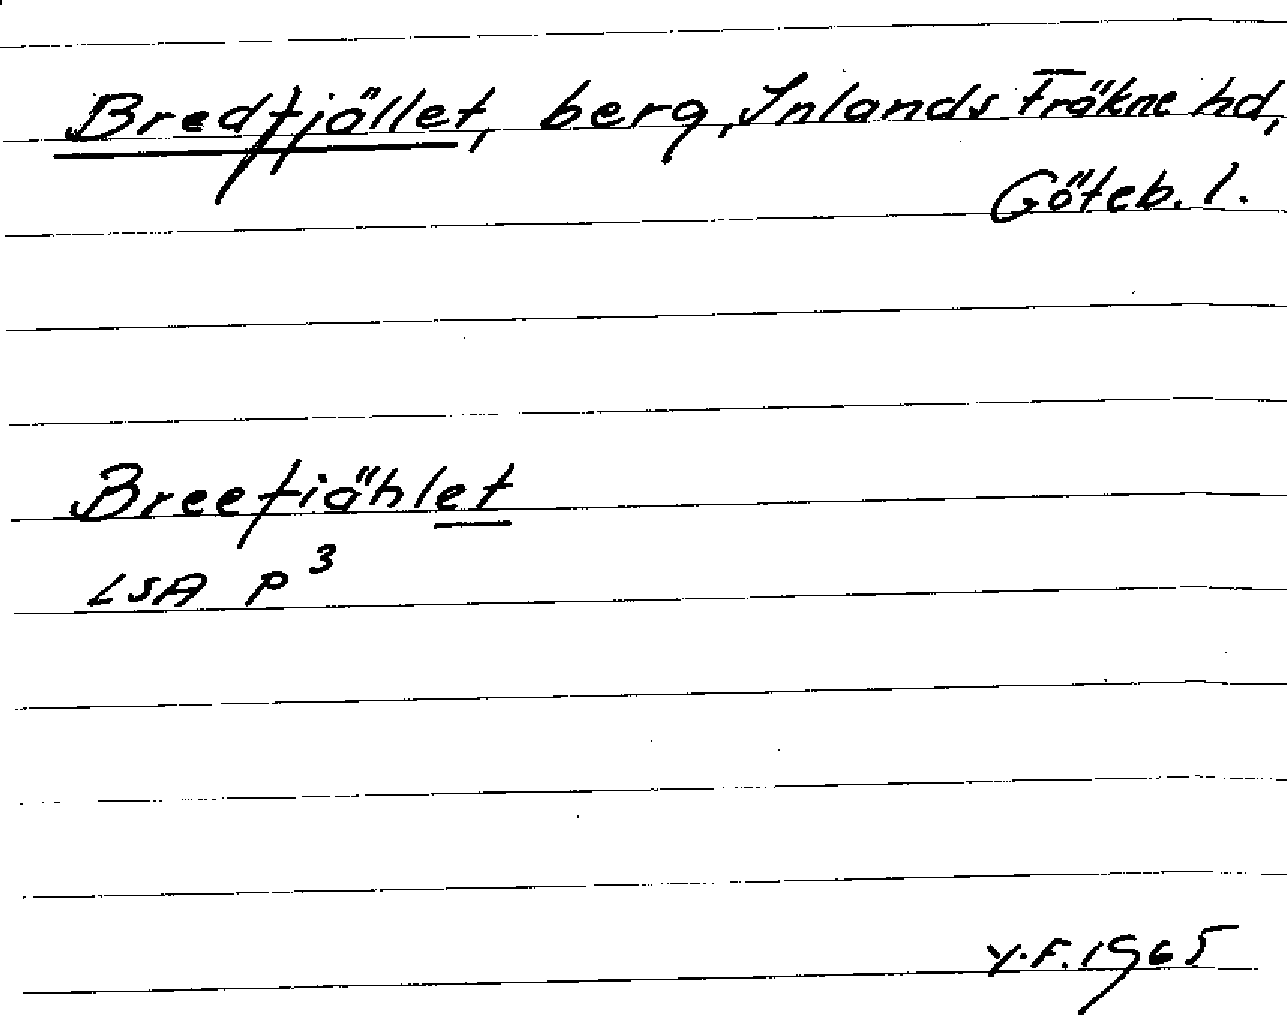 Bredfjället, berg, Inlands Fräkne hd,
Göteb. l.
Breefiählet
LSA P³
Y.F. 1965